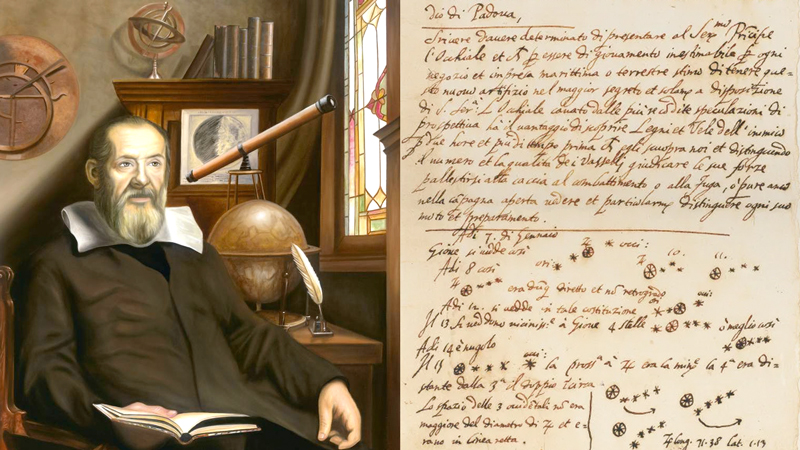 dio di Padova,
Scivere dauere determinato di presentare al Ser^mo Pricipe
l'Occhiale et A p essere di giouamento inestimabile p ogni
negozio et impresa marittima o terrestre stimo di tenere que-
sto nuouo artifizio nel maggior segreto et solamo a disposizione
di S. Ser^a L'Occhiale cauato dalle più recodite speculazioni di
prospettiua ha il uantaggio di scoprire Legni et Vele dell'inimico
p due hore et più di tempo prima ch egli scuopra noi et distinguendo
il numero et la qualità de i Vasselli giudicare le sue forze
pallestirsi alla caccia al combattimento o alla fuga, o pure anco
nella capagna aperta uidere et particolarmte distinguere ogni suo
moto et preparamento.
Adi 7. di Gennaio
Gioue si uedde così
Adi 8 così
era dūq diretto et nō retrogrado
Adi 12. si uedde in tale costituzione
Il 13 si ueddono uicinissi^e à Gioue 4 stelle ò meglio così
Adi 14 è nugolo
Il 15 la pross^a à ♃ era la min^e la 4^a era di-
stante dalla 3^a il doppio circa.
Lo spazio delle 3 occidētali nō era
maggiore del diametro di ♃ et e-
rano in linea retta.
♃ long. 71.38 lat. 1.13